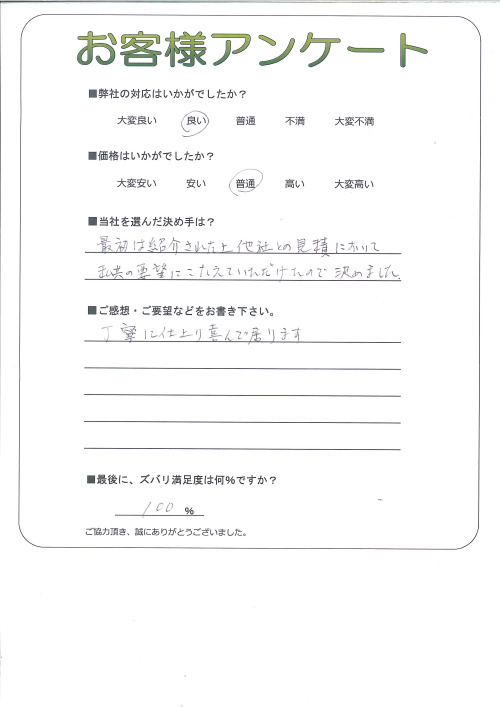 お客様アンケート
■弊社の対応はいかがでしたか？
大変良い 良い 普通 不満 大変不満
■価格はいかがでしたか？
大変安い 安い 普通 高い 大変高い
■当社を選んだ決め手は？
最初は紹介された上他社との見積にかって
私共の要望にこたえていただけたので決めました。
■ご感想・ご要望などをお書き下さい。
丁寧に仕上り喜んで居ります
■最後に、ズバリ満足度は何%ですか？
100 %
ご協力頂き、誠にありがとうございました。